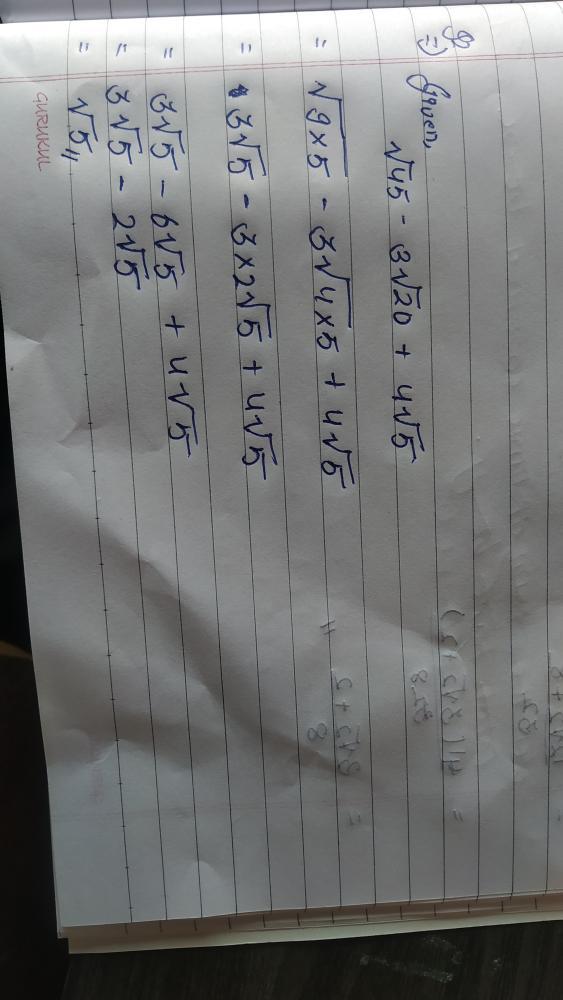 g
⇒ Given,
√45 - 3√20 + 4√5
= √9×5 - 3√4×5 + 4√5
= 3√5 - 3×2√5 + 4√5
= 3√5 - 6√5 + 4√5
= 3√5 - 2√5
= √5
GURUKUL